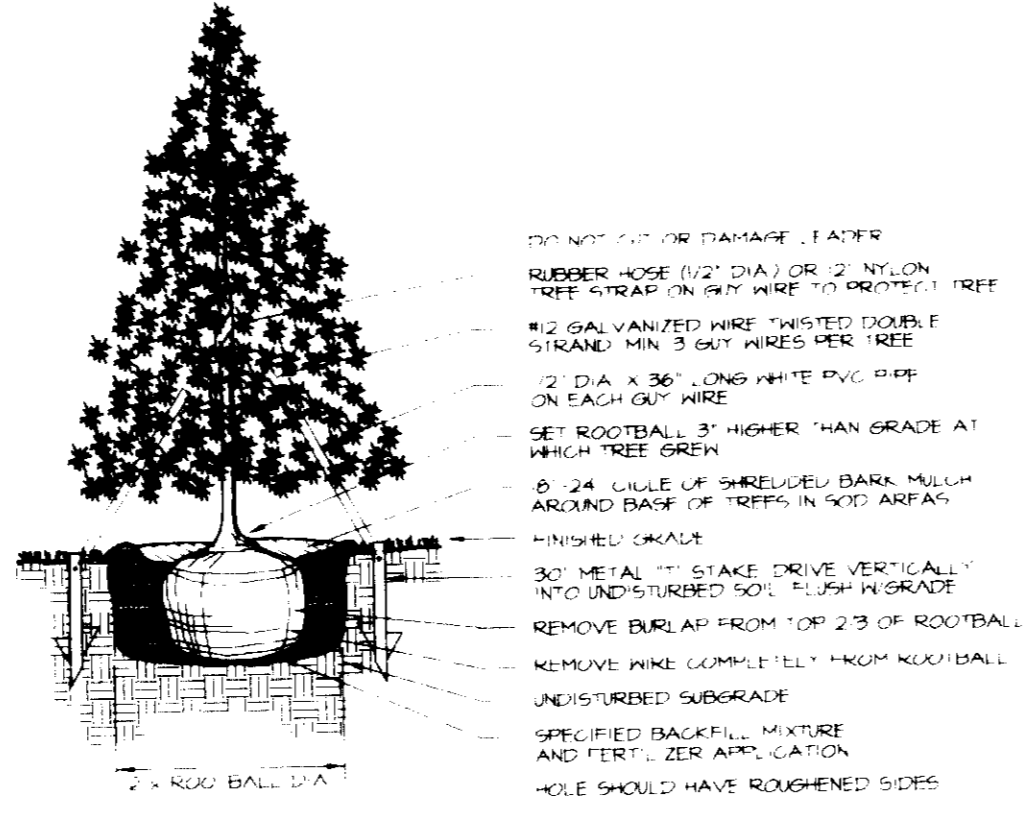 DO NOT CUT OR DAMAGE LEADER
RUBBER HOSE (1/2" DIA.) OR 12" NYLON
TREE STRAP ON GUY WIRE TO PROTECT TREE
#12 GALVANIZED WIRE TWISTED DOUBLE
STRAND MIN 3 GUY WIRES PER TREE
1/2" DIA. X 36" LONG WHITE PVC PIPE
ON EACH GUY WIRE
SET ROOTBALL 3" HIGHER THAN GRADE AT
WHICH TREE GREW
OF SHREDDED BARK MULCH
AROUND BASE OF TREES IN SOD AREAS
FINISHED GRADE
30" METAL "T" STAKE DRIVE VERTICALLY
INTO UNDISTURBED SOIL FLUSH W/GRADE
REMOVE BURLAP FROM TOP 2/3 OF ROOTBALL
REMOVE WIRE COMPLETELY FROM ROOTBALL
UNDISTURBED SUBGRADE
SPECIFIED BACKFILL MIXTURE
AND FERTILIZER APPLICATION
HOLE SHOULD HAVE ROUGHENED SIDES
2 x ROOTBALL DIA